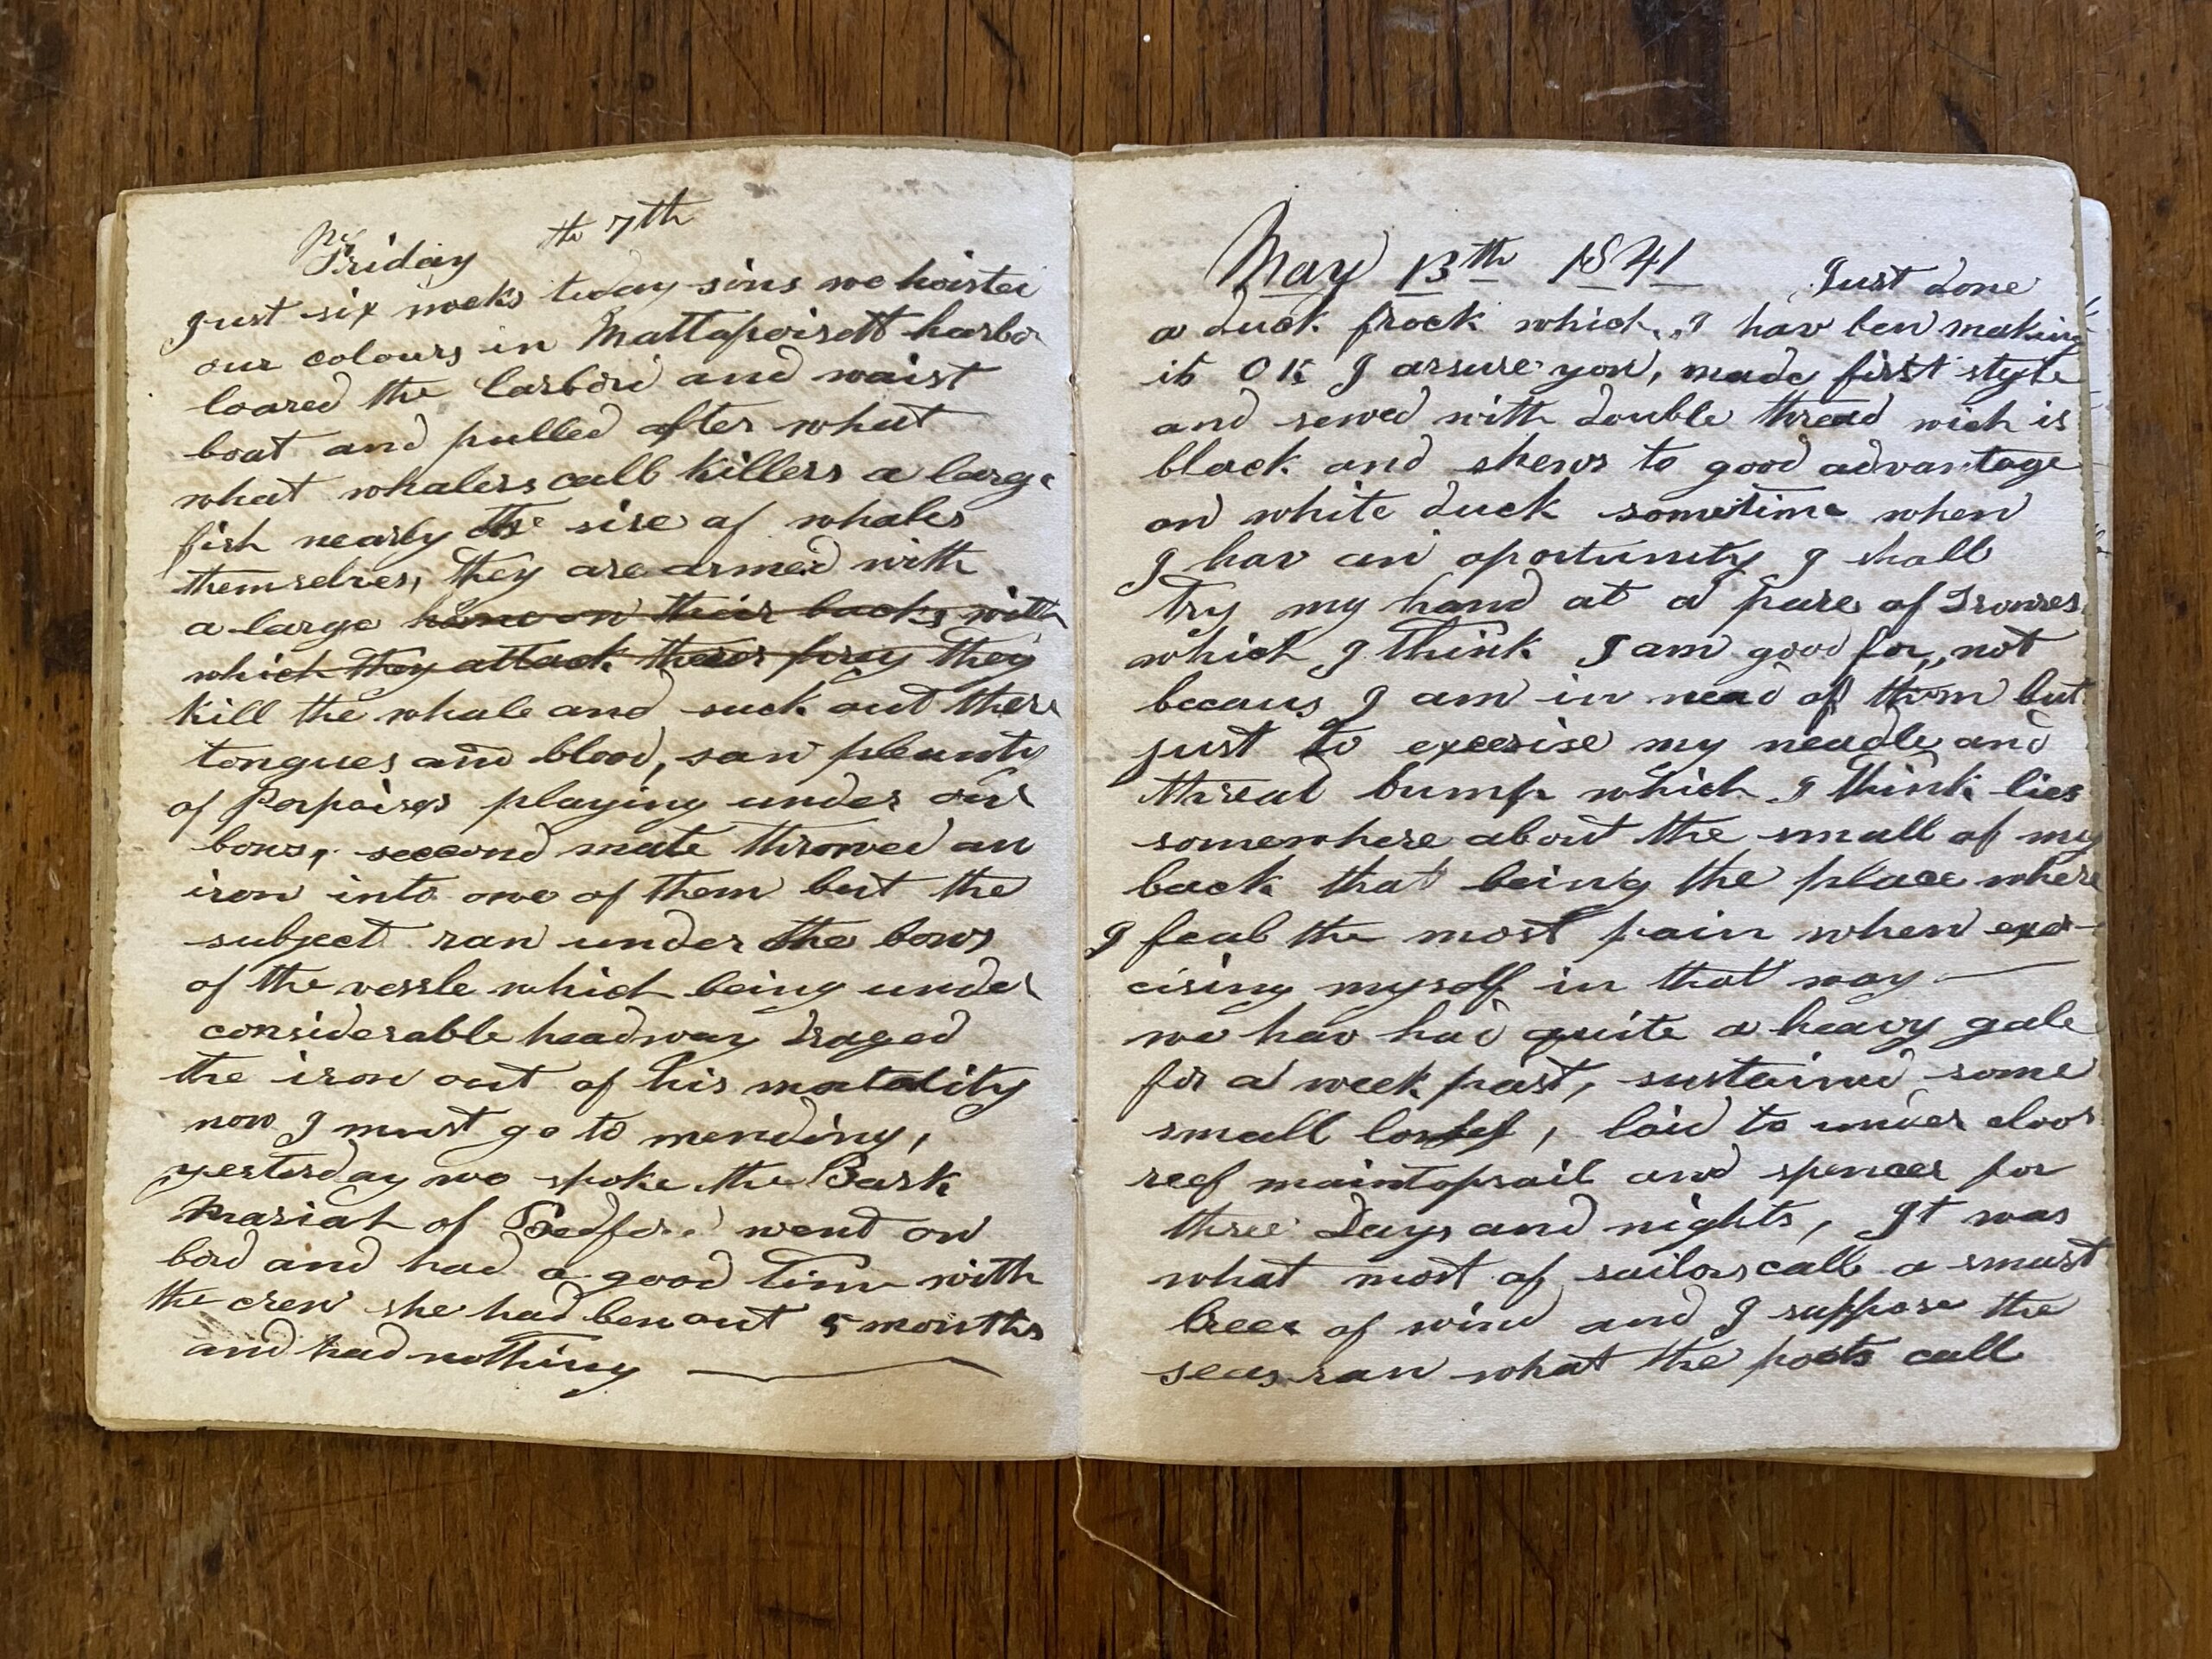 Friday the 7th
Just six weeks today sins we hoisted
our colours in Mattapoisett harbor
loared the larbord and waist
boat and pulled after what
what whalers call killers a large
fish nearly the sise of whales
themselves, they are armed with
a large bone on their backs with
which they attack theirs prey they
kill the whale and suck out there
tongues and blood, saw pleanty
of Porpoises playing under our
bows, seccond mate throwed an
iron into one of them but the
subject ran under the bows
of the vessle which being under
considerable headway draged
the iron out of his matality
now I must go to mending,
yesterday we spoke the Bark
Mariah of Bedford went on
bord and had a good time with
the crew she had ben out 5 months
and had nothing
May 13th 1841 Just done
a duck frock which I hav ben making
its OK I assure you, made first style
and sewed with double thread wich is
black and shews to good advantage
on white duck sometime when
I hav an oportunity I shall
try my hand at a pare of Trowres
which I think I am good for, not
becaus I am in nead of them but
just to excersise my neadle and
thread bump which I think lies
somewhere about the small of my
back that being the place where
I feal the most pain when exer-
cising myself in that way
we hav had quite a heavy gale
for a week past, sustained some
small losses, laid to under cloos
reef maintopsail and spencer for
three Days and nights, It was
what most of sailors call a smart
breez of wind and I suppose the
seas ran what the poets call